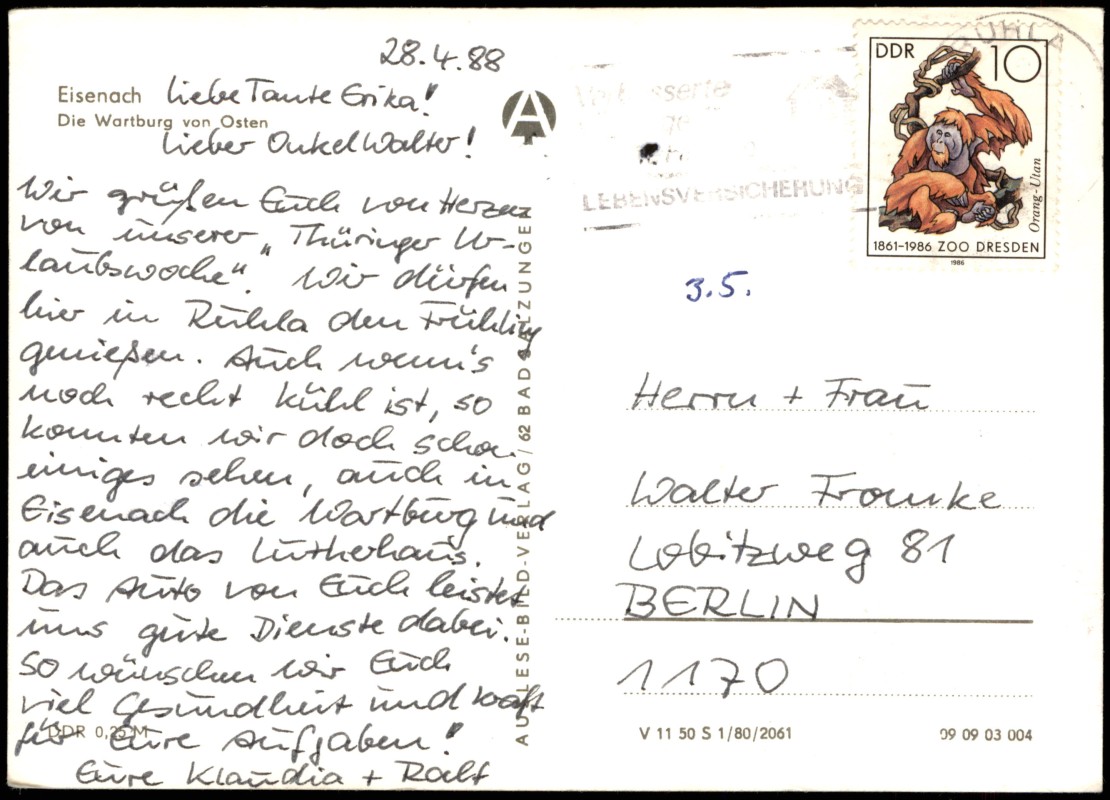 28.4.88
Eisenach
Die Wartburg von Osten
Liebe Tante Erika!
Lieber Onkel Walter!
Wir grüßen Euch von Herzen
von unserer „Thüringer Ur-
laubswoche". Wir dürfen
hier in Ruhla den Frühling
genießen. Auch wenn's
noch recht kühl ist, so
konnten wir doch schon
einiges sehen, auch in
Eisenach die Wartburg und
auch das Lutherhaus.
Das Auto von Euch leistet
uns gute Dienste dabei.
So wünschen wir Euch
viel Gesundheit und Kraft
für Eure Aufgaben!
Eure Klaudia + Ralf
DDR 0,25 M
A
AUSLESE-BILD-VERLAG / 62 BAD SALZUNGEN
LEBENSVERSICHERUNG
RUHLA
DDR 10
Orang-Utan
1861-1986 ZOO DRESDEN
1986
3.5.
Herrn + Frau
Walter Franke
Lobitzweg 81
BERLIN
1170
V 11 50 S 1/80/2061
09 09 03 004